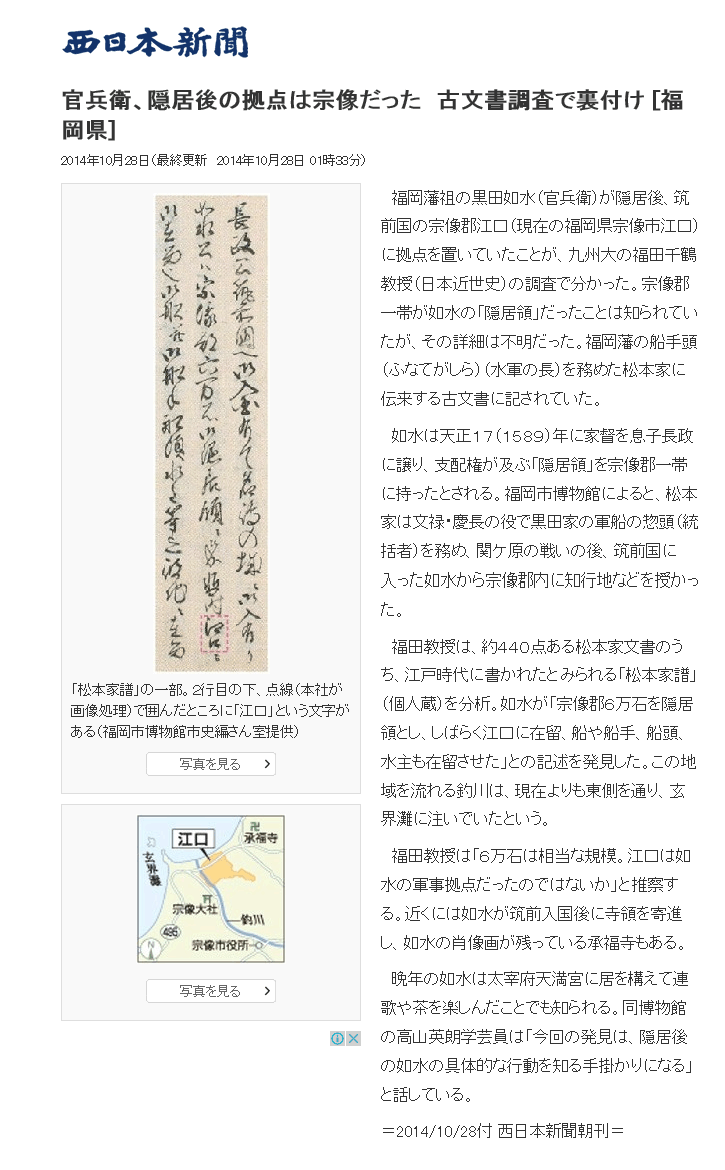 西日本新聞
官兵衛、隠居後の拠点は宗像だった　古文書調査で裏付け [福
岡県]
2014年10月28日(最終更新　2014年10月28日 01時33分)
「松本家譜」の一部。2行目の下、点線(本社が
画像処理)で囲んだところに「江口」という文字が
ある(福岡市博物館市史編さん室提供)
写真を見る
江口
卍
承福寺
玄界灘
宗像大社
釣川
495
宗像市役所
N
写真を見る
福岡藩祖の黒田如水(官兵衛)が隠居後、筑
前国の宗像郡江口(現在の福岡県宗像市江口)
に拠点を置いていたことが、九州大の福田千鶴
教授(日本近世史)の調査で分かった。宗像郡
一帯が如水の「隠居領」だったことは知られてい
たが、その詳細は不明だった。福岡藩の船手頭
(ふなてがしら)(水軍の長)を務めた松本家に
伝来する古文書に記されていた。
如水は天正17(1589)年に家督を息子長政
に譲り、支配権が及ぶ「隠居領」を宗像郡一帯
に持ったとされる。福岡市博物館によると、松本
家は文禄・慶長の役で黒田家の軍船の惣頭(統
括者)を務め、関ケ原の戦いの後、筑前国に
入った如水から宗像郡内に知行地などを授かっ
た。
福田教授は、約440点ある松本家文書のう
ち、江戸時代に書かれたとみられる「松本家譜」
(個人蔵)を分析。如水が「宗像郡6万石を隠居
領とし、しばらく江口に在留、船や船手、船頭、
水主も在留させた」との記述を発見した。この地
域を流れる釣川は、現在よりも東側を通り、玄
界灘に注いでいたという。
福田教授は「6万石は相当な規模。江口は如
水の軍事拠点だったのではないか」と推察す
る。近くには如水が筑前入国後に寺領を寄進
し、如水の肖像画が残っている承福寺もある。
晩年の如水は太宰府天満宮に居を構えて連
歌や茶を楽しんだことでも知られる。同博物館
の高山英朗学芸員は「今回の発見は、隠居後
の如水の具体的な行動を知る手掛かりになる」
と話している。
＝2014/10/28付 西日本新聞朝刊＝